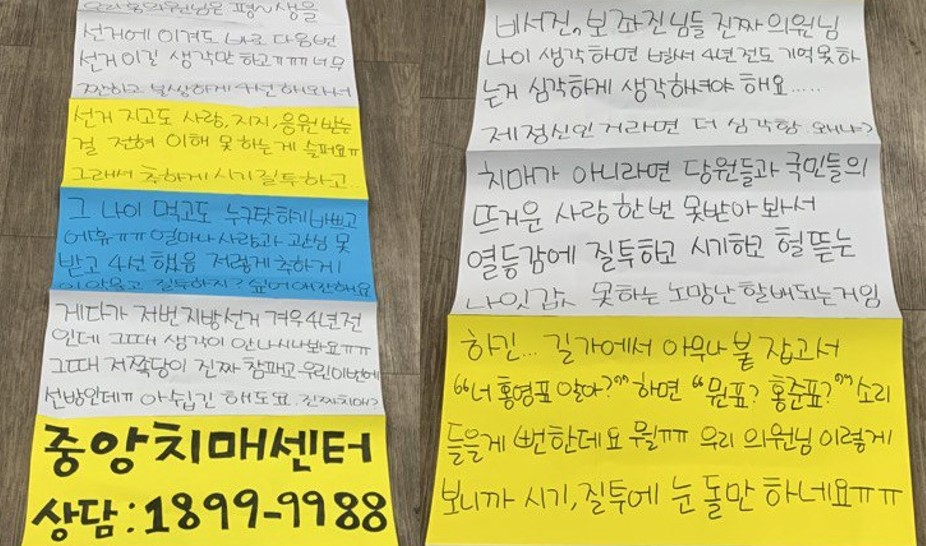 우리 홍의원님은 평~생을
선거에 이겨도 바로 다음번
선거이길 생각만 하고ㅠㅠㅠ너무
짠하고 불쌍하게 4선 해와서
선거 지고도 사랑,지지,응원 받는
걸 전혀 이해 못하는게 슬퍼요ㅠ
그래서 추하게 시기질투하고...
그 나이 먹고도 누구탓하기 바쁘고
어떠ㅠㅠ 얼마나 사랑과 관심 못
받고 4선 했음 저렇게 추하게
질투하지? 싶어 애잔해요
게다가 저번 지방선거 겨우 4년전
인데 그때 생각이 안나시나봐요ㅠㅠ
그때 저쪽당이 진짜 참패고 우린이번에
선방인데ㅠ 아쉽긴 해도요. 진짜치매?
중앙치매센터
상담:1899-9988
비서진, 보좌진님들 진짜 의원님
나이 생각하면 벌써 4년전도 기억못하
는거 심각하게 생각하셔야 해요.....
제정신인거라면 더 심각함. 왜냐?
치매가 아니라면 당원들과 국민들의
뜨거운 사랑 한번 못받아 봐서
열등감에 질투하고 시기하고 헐뜯는
나잇값 못하는 노망난 할배되는거임
하긴... 길가에서 아무나 붙잡고서
"너 홍영표 알아?" 하면 "뭔표? 홍준표?" 소리
들을게 뻔한데요 뭘ㅠㅠ 우리 의원님 이렇게
보니까 시기,질투에 눈 돌만 하네요ㅠㅠ